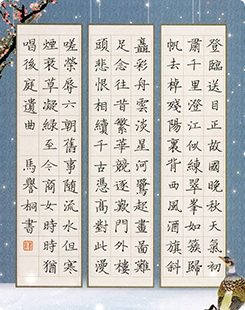 登臨送目正故國晚秋天氣初
肅千里澄江似練翠峯如簇歸
帆去棹殘陽裏背西風酒旗斜
矗彩舟雲淡星河鷺起畫圖難
足念往昔繁華競逐歎門外樓
頭悲恨相續千古憑高對此謾
嗟榮辱六朝舊事隨流水但寒
煙衰草凝綠至今商女時時猶
唱後庭遺曲 馬譽桐書